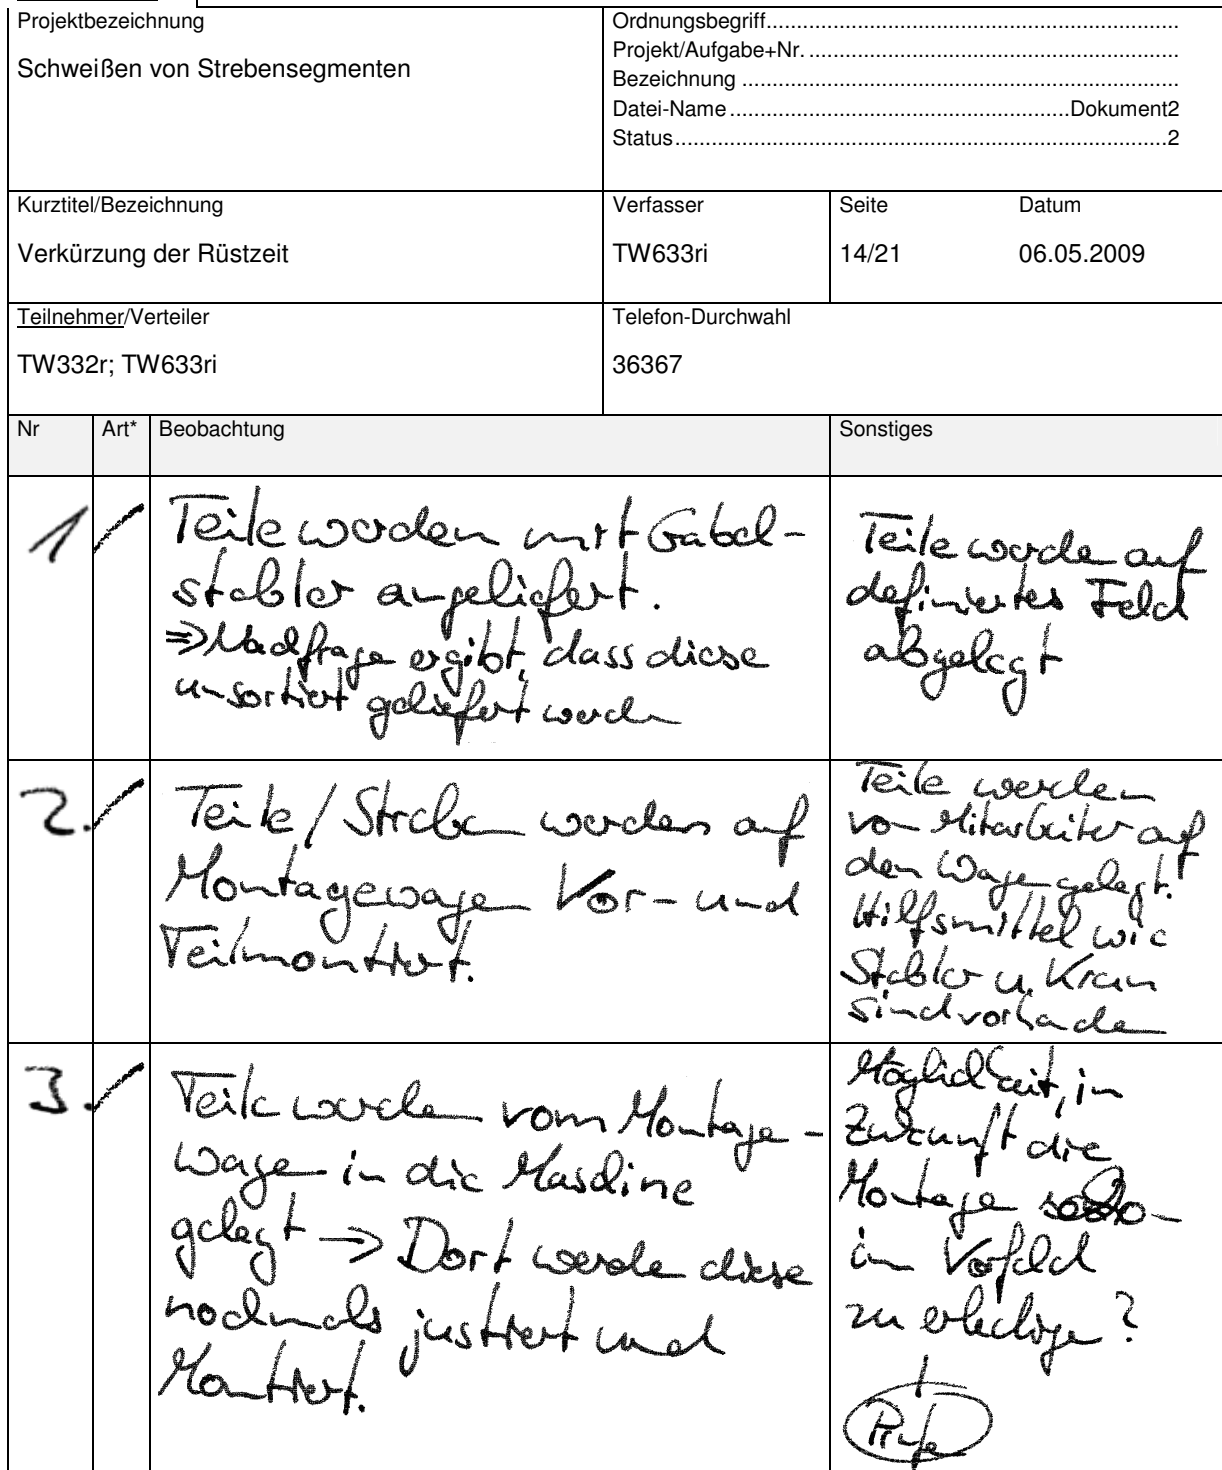 Projektbezeichnung
Schweißen von Strebensegmenten
Ordnungsbegriff
Projekt/Aufgabe+Nr.
Bezeichnung
Datei-Name Dokument2
Status 2
Kurztitel/Bezeichnung
Verkürzung der Rüstzeit
Verfasser
TW633ri
Seite
14/21
Datum
06.05.2009
Teilnehmer/Verteiler
TW332r; TW633ri
Telefon-Durchwahl
36367
Nr Art* Beobachtung Sonstiges
1
Teile werden mit Gabel-
stabler angeliefert.
=> Nachfrage ergibt, dass diese
unsortiert geliefert werden
Teile werden auf
definiertes Feld
abgelegt
2.
Teile / Streben werden auf
Montagewagen Vor- und
Teilmontiert.
Teile werden
von Mitarbeiter auf
den Wagen gelegt.
Hilfsmittel wie
Stabler u. Kran
sind vorhanden
3.
Teile werden vom Montage-
wagen in die Maschine
gelegt => Dort werden diese
nochmals justiert und
Montiert.
Möglichkeit, in
Zukunft die
Montage
im Vorfeld
zu erledigen?
Prüfen